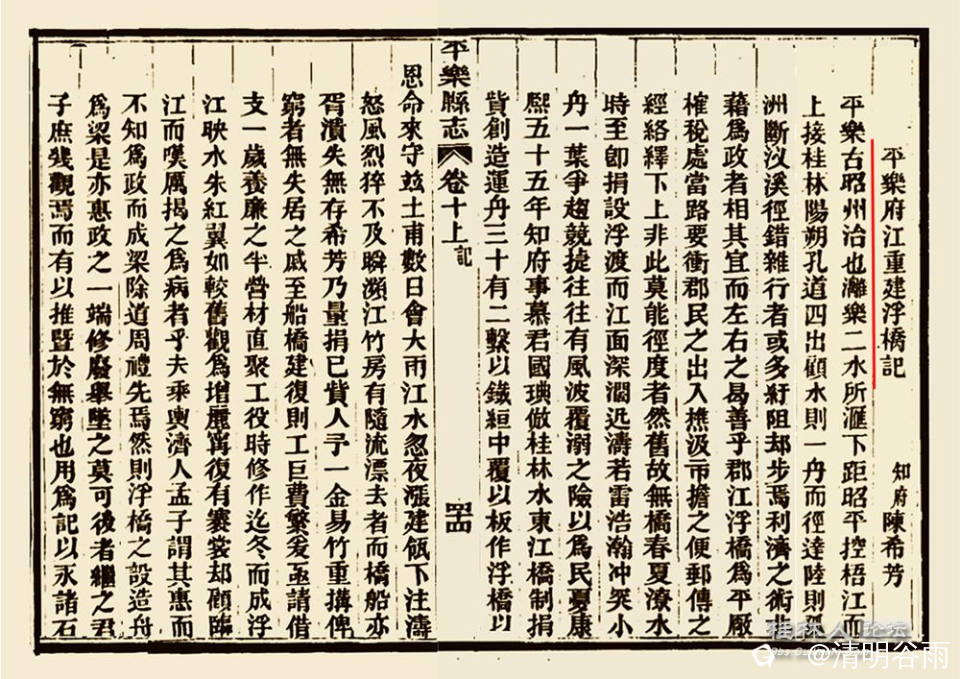 平樂府江重建浮橋記 知府陳希芳
平樂古昭州治也灕樂二水所滙下距昭平控梧江而
上接桂林陽朔孔道四出顧水則一舟而徑達陸則
洲斷汊溪徑錯雜行者或多紆阻却步焉利濟之術非
藉爲政者相其宜而左右之曷善乎郡江浮橋爲平厰
榷稅處當路要衝郡民之出入樵汲市擔之便郵傳之
經絡繹下上非此莫能徑度者然舊故無橋春夏潦水
時至卽捐設浮渡而江面深濶迅濤若雷浩瀚冲突小
舟一葉爭趨競捷往往有風波覆溺之險以爲民憂康
熙五十五年知府事慕君國琠倣桂林水東江橋制捐
貲創造運舟三十有二繫以鐵絙中覆以板作浮橋以
平樂縣志 卷十上 記
恩命來守兹土甫數日會大雨江水忽夜漲建瓴下注濤
怒風烈猝不及瞬瀕江竹房有隨流漂去者而橋船亦
胥潰失無存希芳乃量捐已貲人予一金易竹重搆俾
窮者無失居之戚至船橋建復則工巨費繁爰亟請借
支一歲養廉之半營材直聚工役時修作迄冬而成浮
江映水朱紅翼如較舊觀爲增麗寗復有褰裳却顧臨
江而嘆厲揭之爲病者乎夫乘輿濟人孟子謂其惠而
不知爲政而成梁除道周禮先焉然則浮橋之設造舟
爲梁是亦惠政之一端修廢舉墜之莫可後者繼之君
子庶幾觀焉而有以推曁於無窮也用爲記以永諸石
桂林人论坛
@清明谷雨